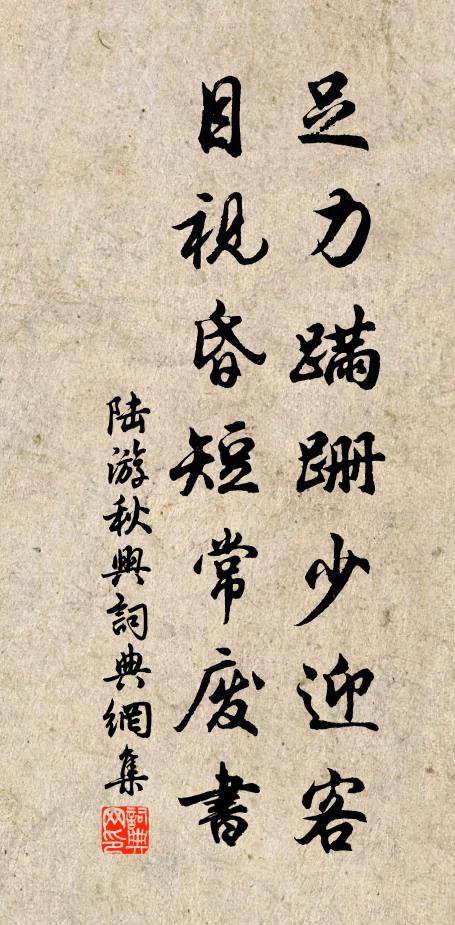 足力蹣跚少迎客
目視昏短常廢書
陸游秋興詞典網集
詞典
网印